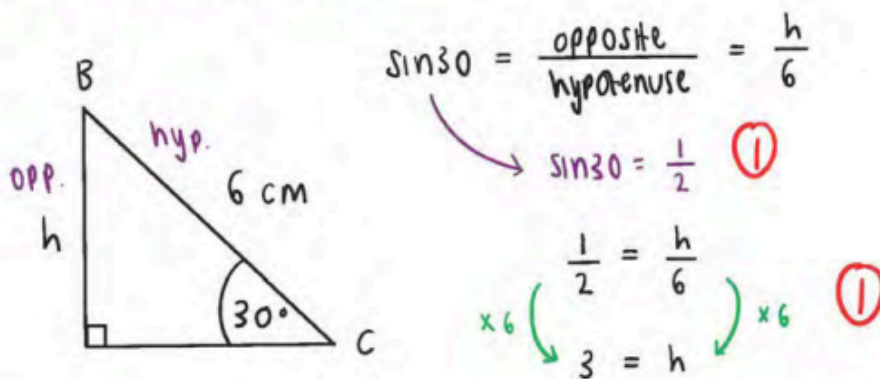 B
opp.
hyp.
h
6 cm
30°
C
sin30 = opposite / hypotenuse = h / 6
sin30 = 1/2
1
1/2 = h/6
× 6
× 6
1
3 = h